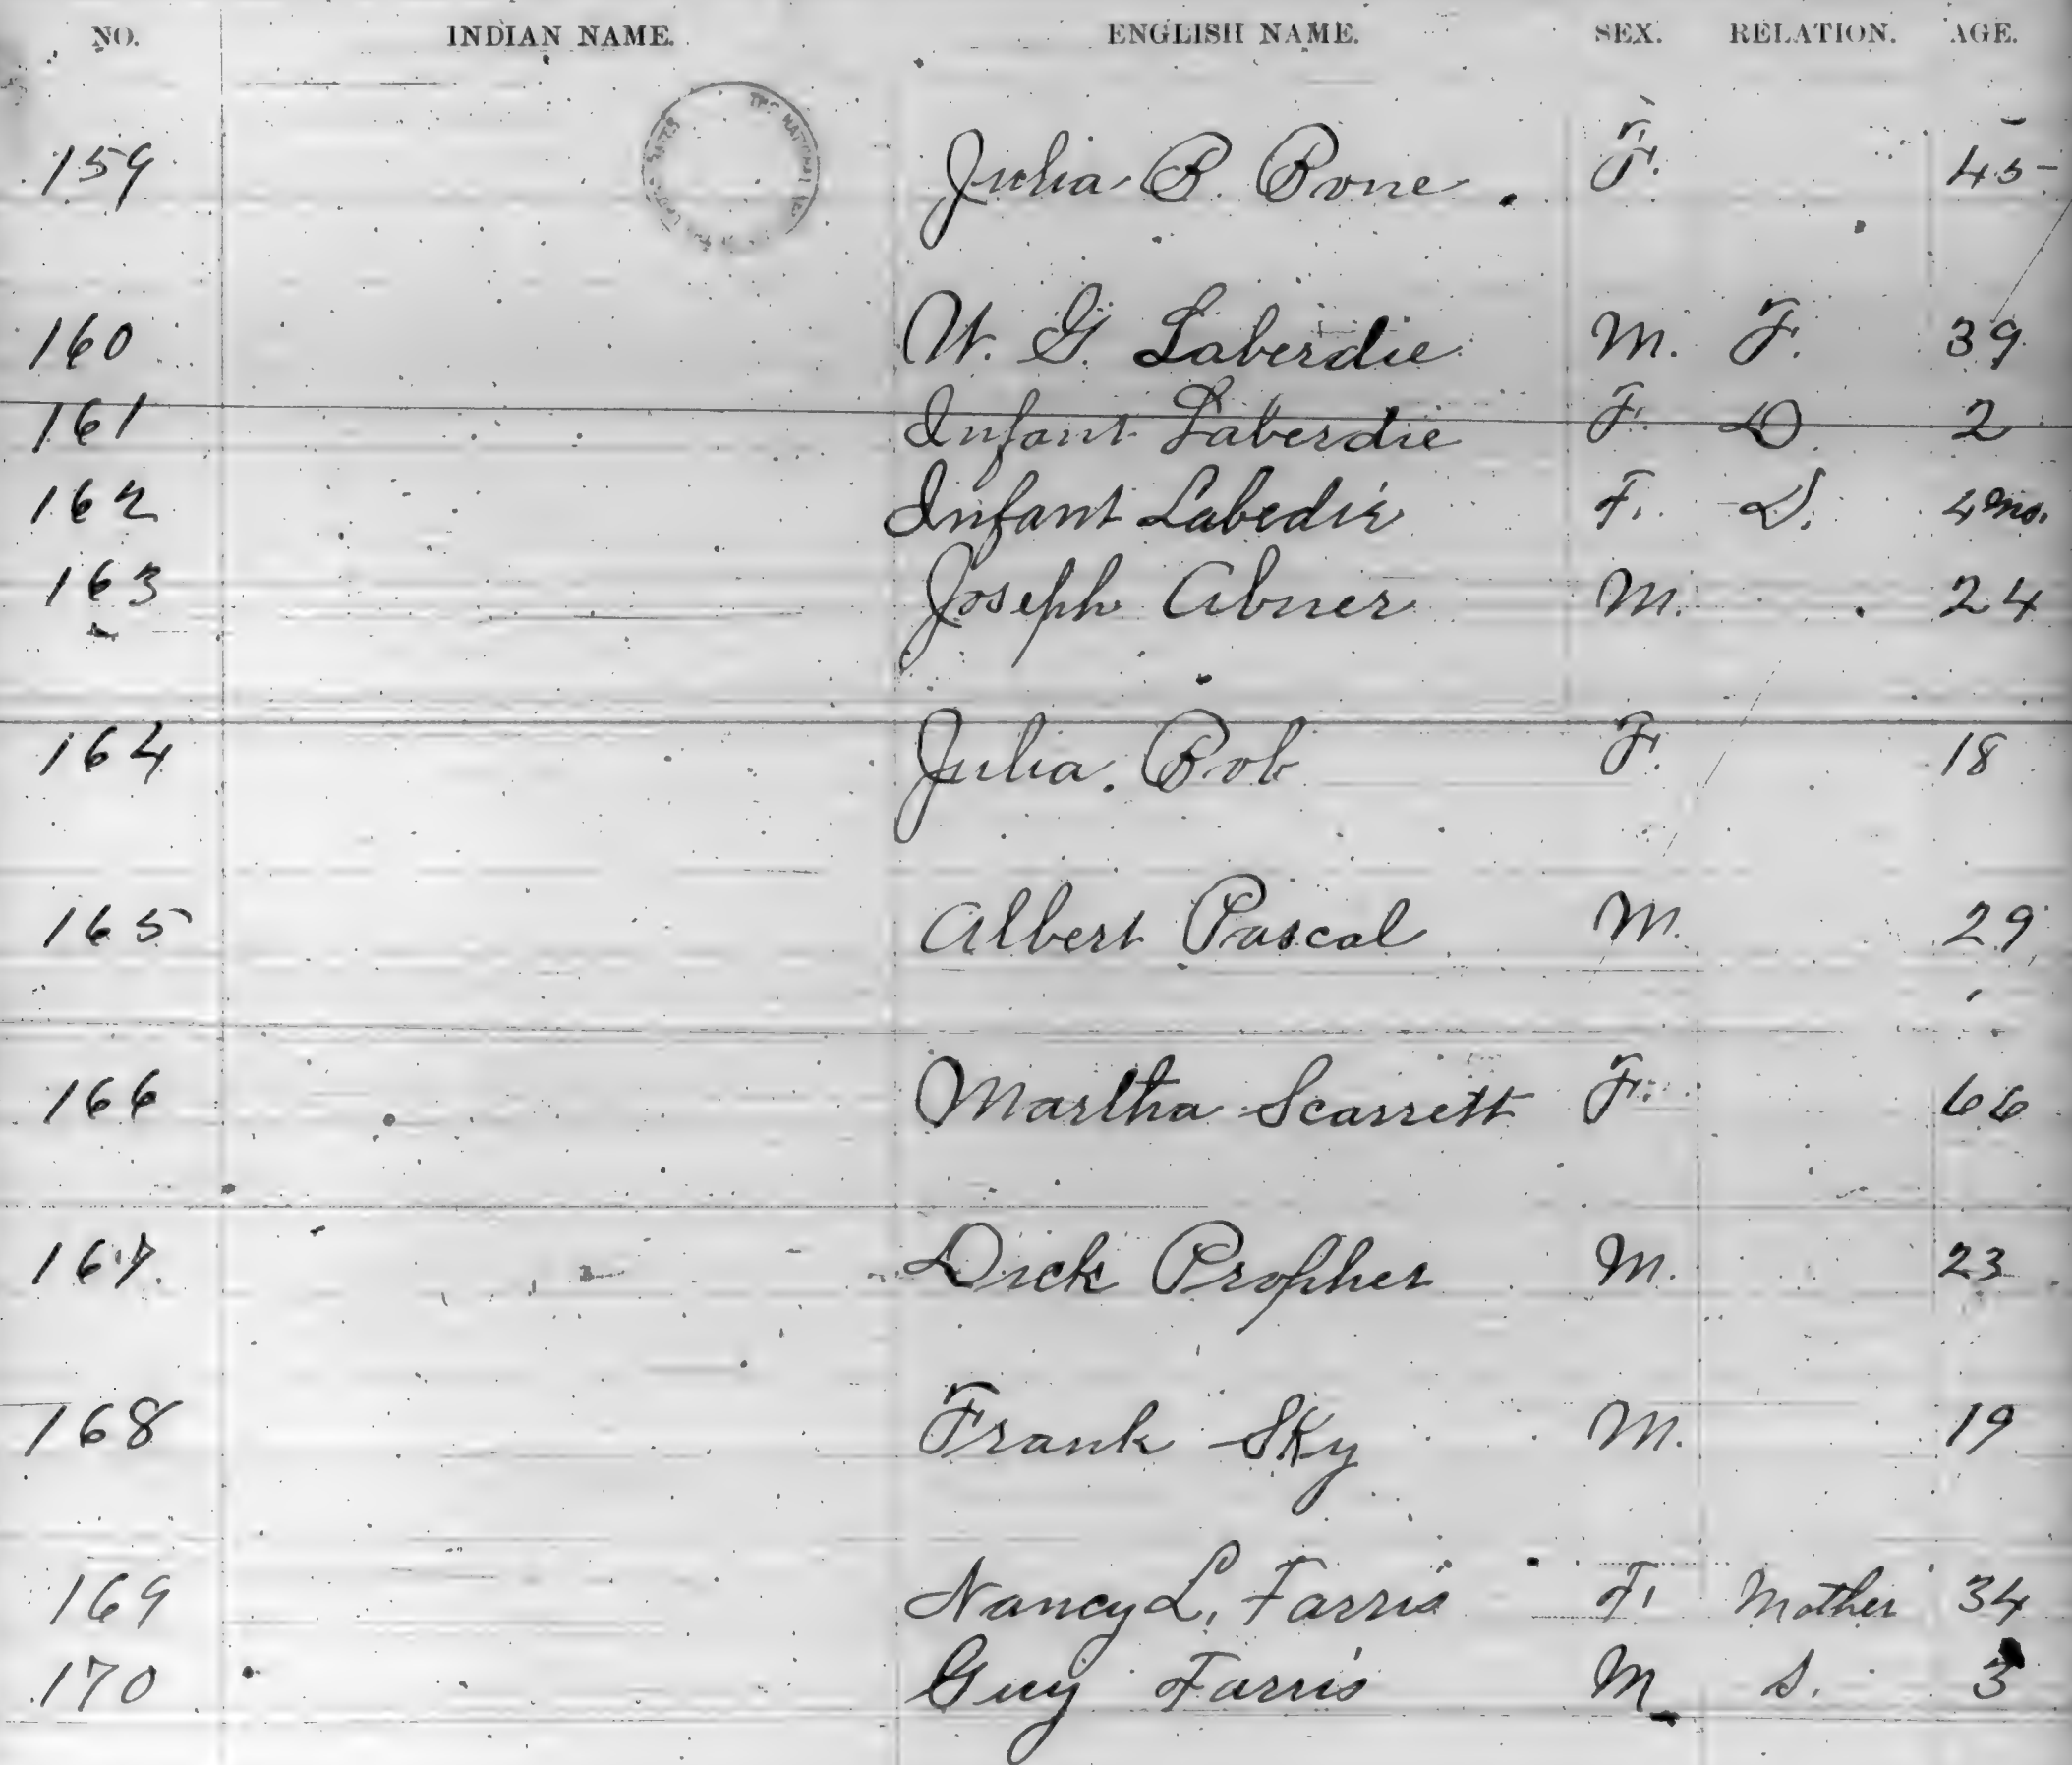 NO. INDIAN NAME. ENGLISH NAME. SEX. RELATION. AGE.
159 Julia B. Bone. F. 45
160 W. G. Laberdie M. F. 39
161 Infant Laberdie F. D. 2
162 Infant Labedie F. D. 4 mo.
163 Joseph Abner M. 24
164 Julia Bob F. 18
165 Albert Pascal M. 29
166 Martha Scarrett F. 66
167 Dick Propher M. 23
168 Frank Sky M. 19
169 Nancy L. Farris F. Mother 34
170 Guy Farris M S. 3